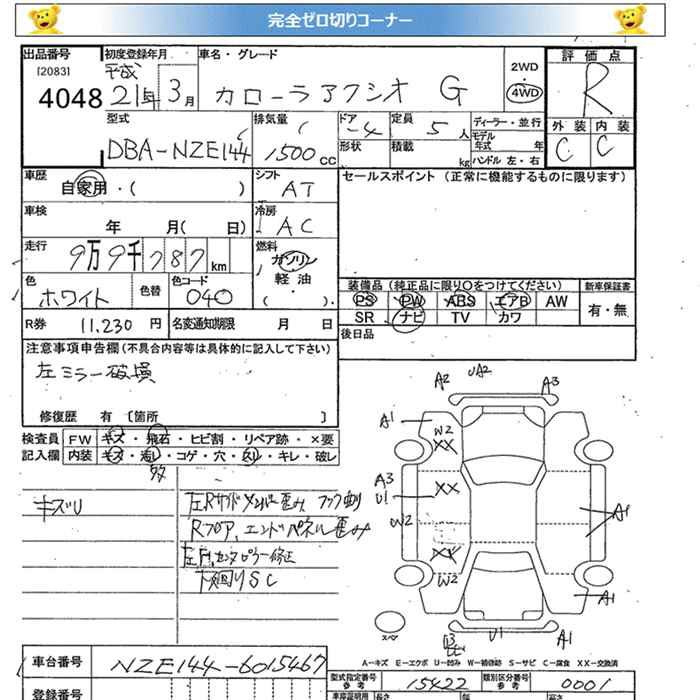 完全ゼロ切りコーナー
出品番号 [2083] 4048
初度登録年月 平成 21年 3月
車名・グレード カローラアクシオ G
2WD 4WD
評価点 R
外装 内装
C C
型式 DBA-NZE144
排気量 1500 CC
ドア 4
形状
定員 5 人
積載 kg
ディーラー・並行
モデル年式 年
ハンドル 左・右
車歴 自家用・( )
シフト AT
セールスポイント (正常に機能するものに限ります)
車検 年 月( 日)
冷房 AC
走行 9万9千787km
燃料 ガソリン 軽油 ( )
色 ホワイト 色替
色コード 040
装備品 (純正品に限り○をつけてください) 新車保証書
PS PW ABS エアB AW 有・無
SR ナビ TV カワ
R券 11,230 円 名変通知期限 月 日
後日品
注意事項申告欄(不具合内容等は具体的に記入して下さい)
左ミラー破損
修復歴 有 [箇所 ]
検査員 FW キズ・飛石・ヒビ割・リペア跡・×要
記入欄 内装 キズ・汚レ・コゲ・穴・スリ・キレ・破レ
キズU
Rフロア、エンドパネル歪み
下廻りSC
A2 UA2 A3
A1 W2 XX
A3 U1 XX
W2 A1
XX W2 A1
スペア
U1 A1
A-キズ E-エクボ U-凹み W-補修跡 S-サビ C-腐食 XX-交換済
車台番号 NZE144-6015467
型式指定番号 参考 15422
類別区分番号 参考 0001
登録番号
車庫証明用 参考 長さ 幅 高さ